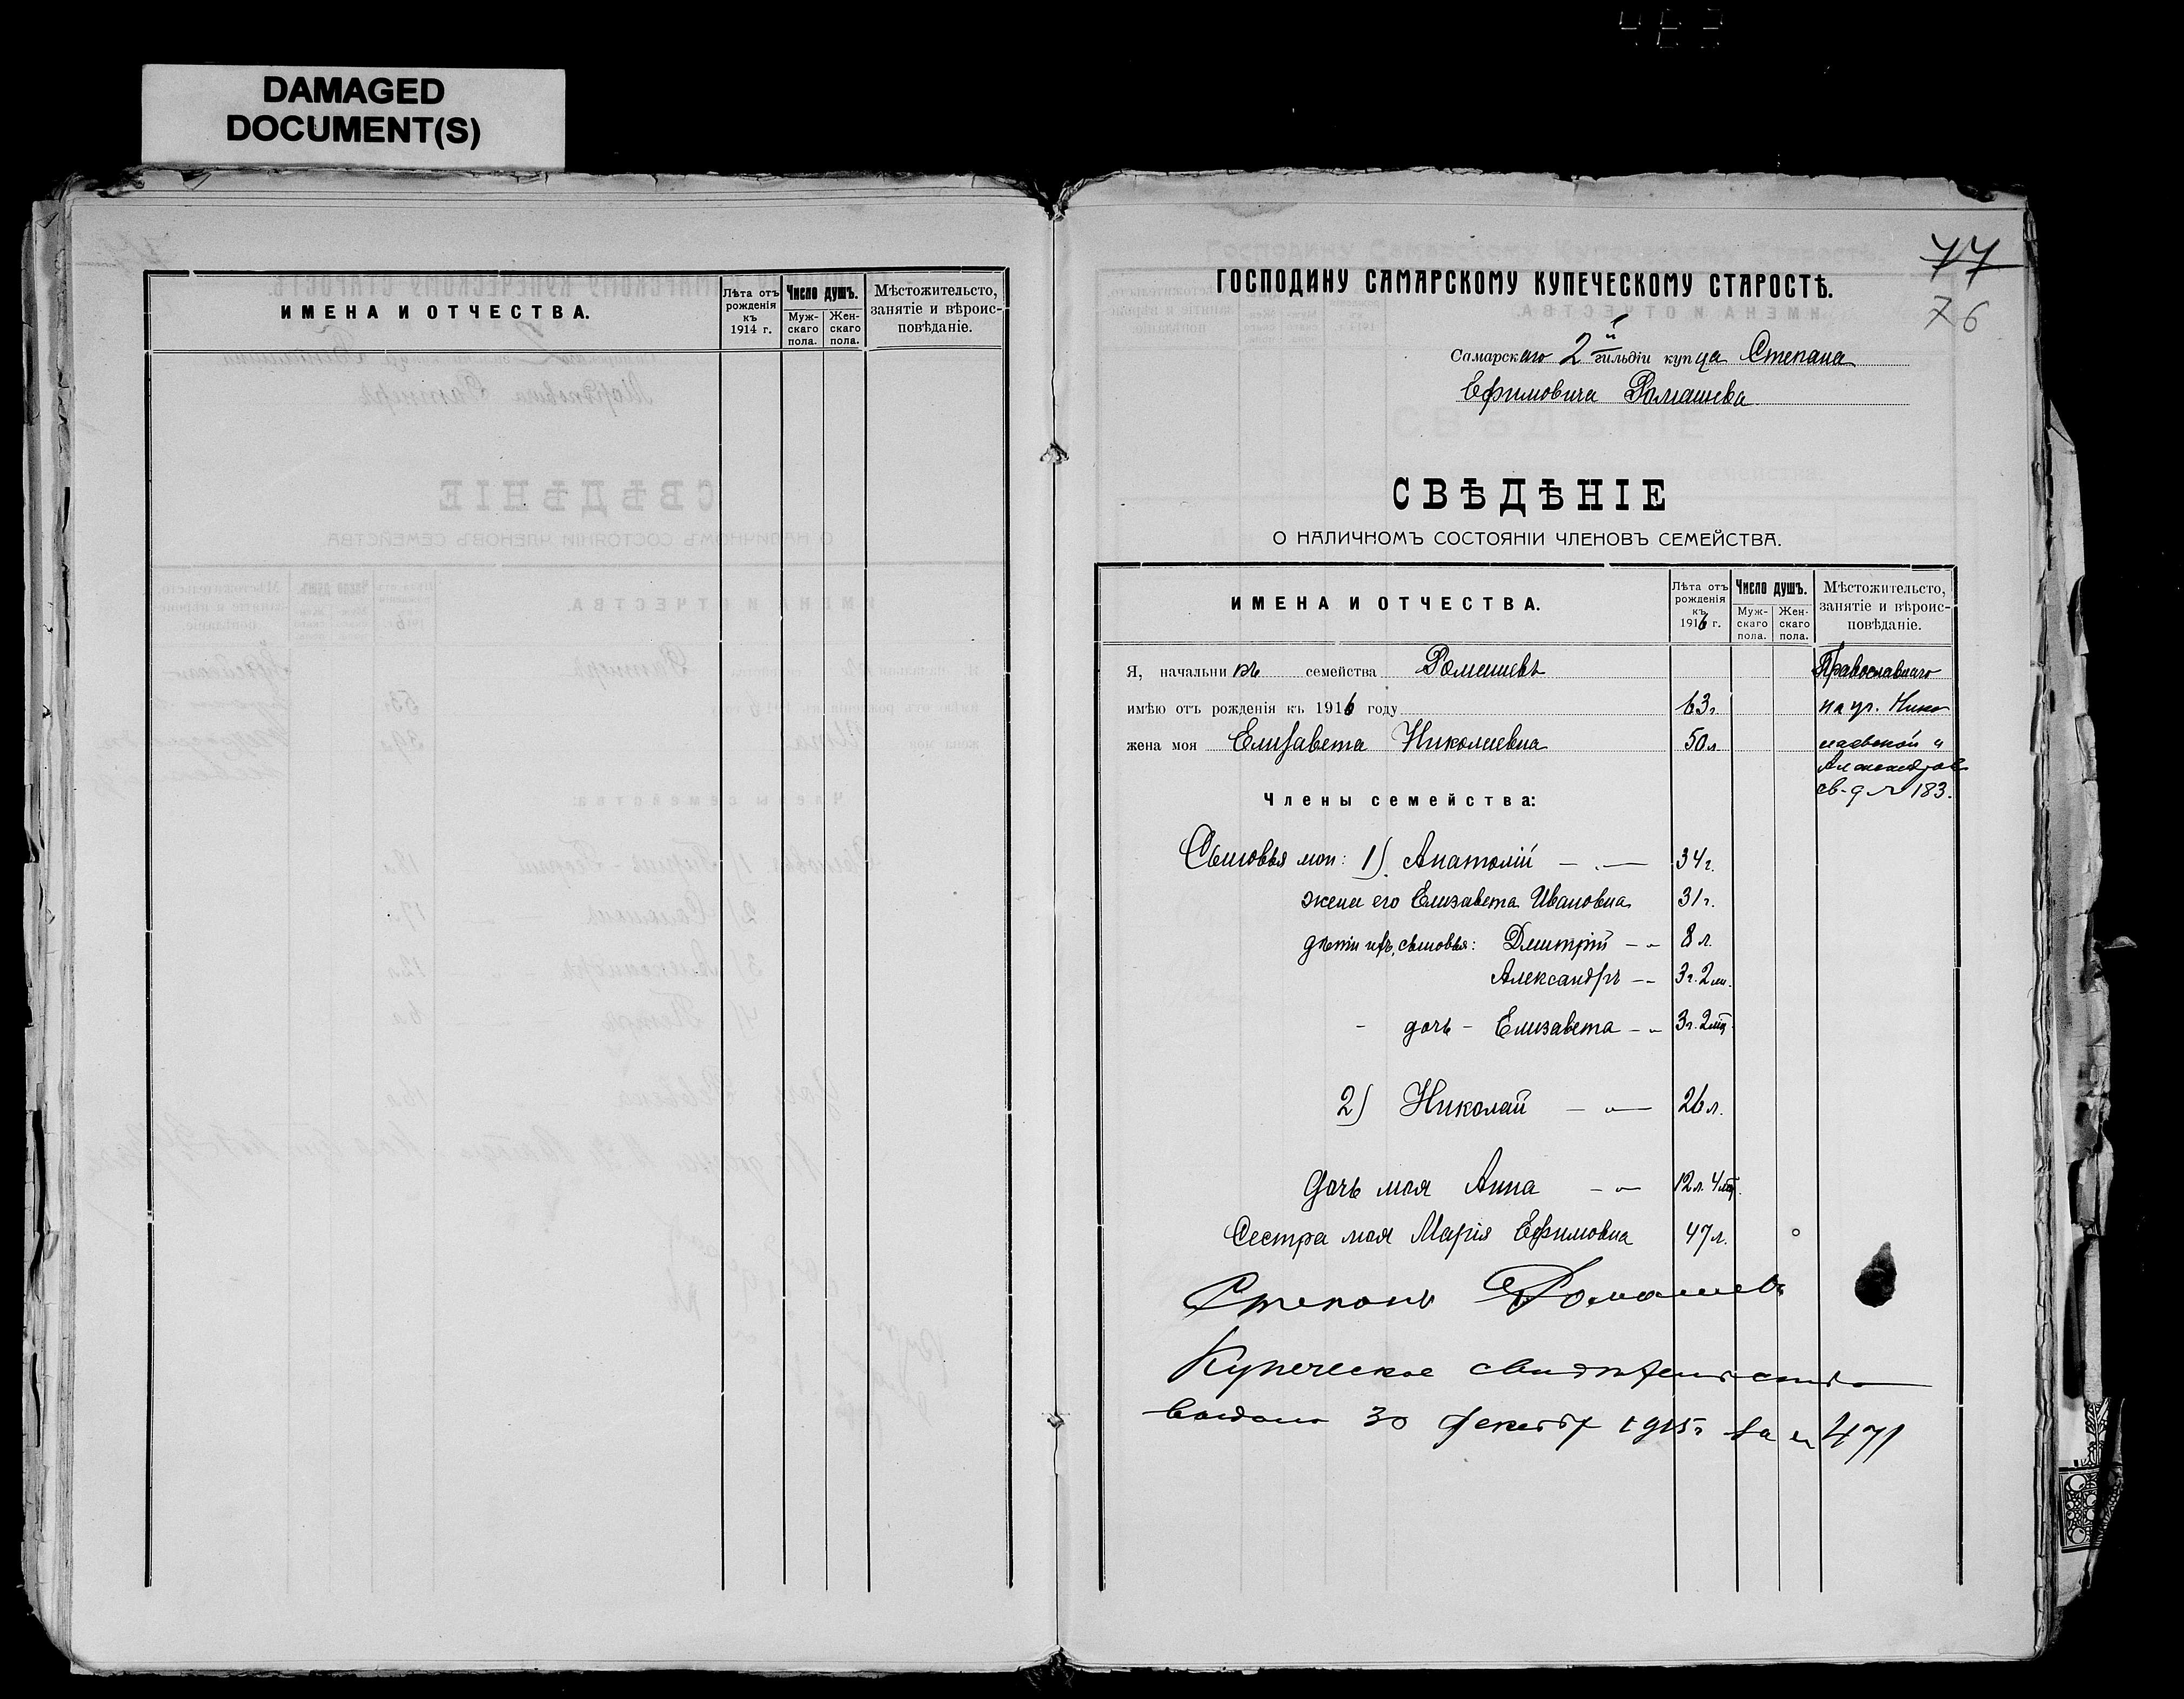 DAMAGED
DOCUMENT(S)
ИМЕНА И ОТЧЕСТВА.
Лѣта отъ рожденія къ 1914 г.
Число душъ.
Мужскаго пола.
Женскаго пола.
Мѣстожительсто,
занятіе и вѣроис-
повѣданіе.
77
76
ГОСПОДИНУ САМАРСКОМУ КУПЕЧЕСКОМУ СТАРОСТѢ.
Самарскаго 2й гильдіи купца Степана
Ефимовича Ромашева
СВѢДѢНІЕ
О НАЛИЧНОМЪ СОСТОЯНІИ ЧЛЕНОВЪ СЕМЕЙСТВА.
ИМЕНА И ОТЧЕСТВА.
Лѣта отъ рожденія къ 1916 г.
Число душъ.
Мужскаго пола.
Женскаго пола.
Мѣстожительсто,
занятіе и вѣроис-
повѣданіе.
Я, начальникъ семейства Ромашевъ Православнаго
имѣю отъ рожденія къ 1916 году 63 г. на уг. Нико
жена моя Елизавета Николаевна 50 л лаевской и
Александров
св. д № 183.
Члены семейства:
Сыновья мои: 1) Анатолій — 34 г.
жена его Елизавета Ивановна 31 г.
дѣти ихъ, сыновья: Дмитрій - - 8 л.
Александръ - - 3 г. 2 м.
- дочь - Елизавета - - 3 г. 2 мц.
2) Николай — 26 л.
Дочь моя Анна - - 12 л. 4 мц.
Сестра моя Марія Ефимовна 47 л.
Степанъ Ромашевъ
Купеческое свидѣтельство
выдано 30 декабр 1915 г за № 471